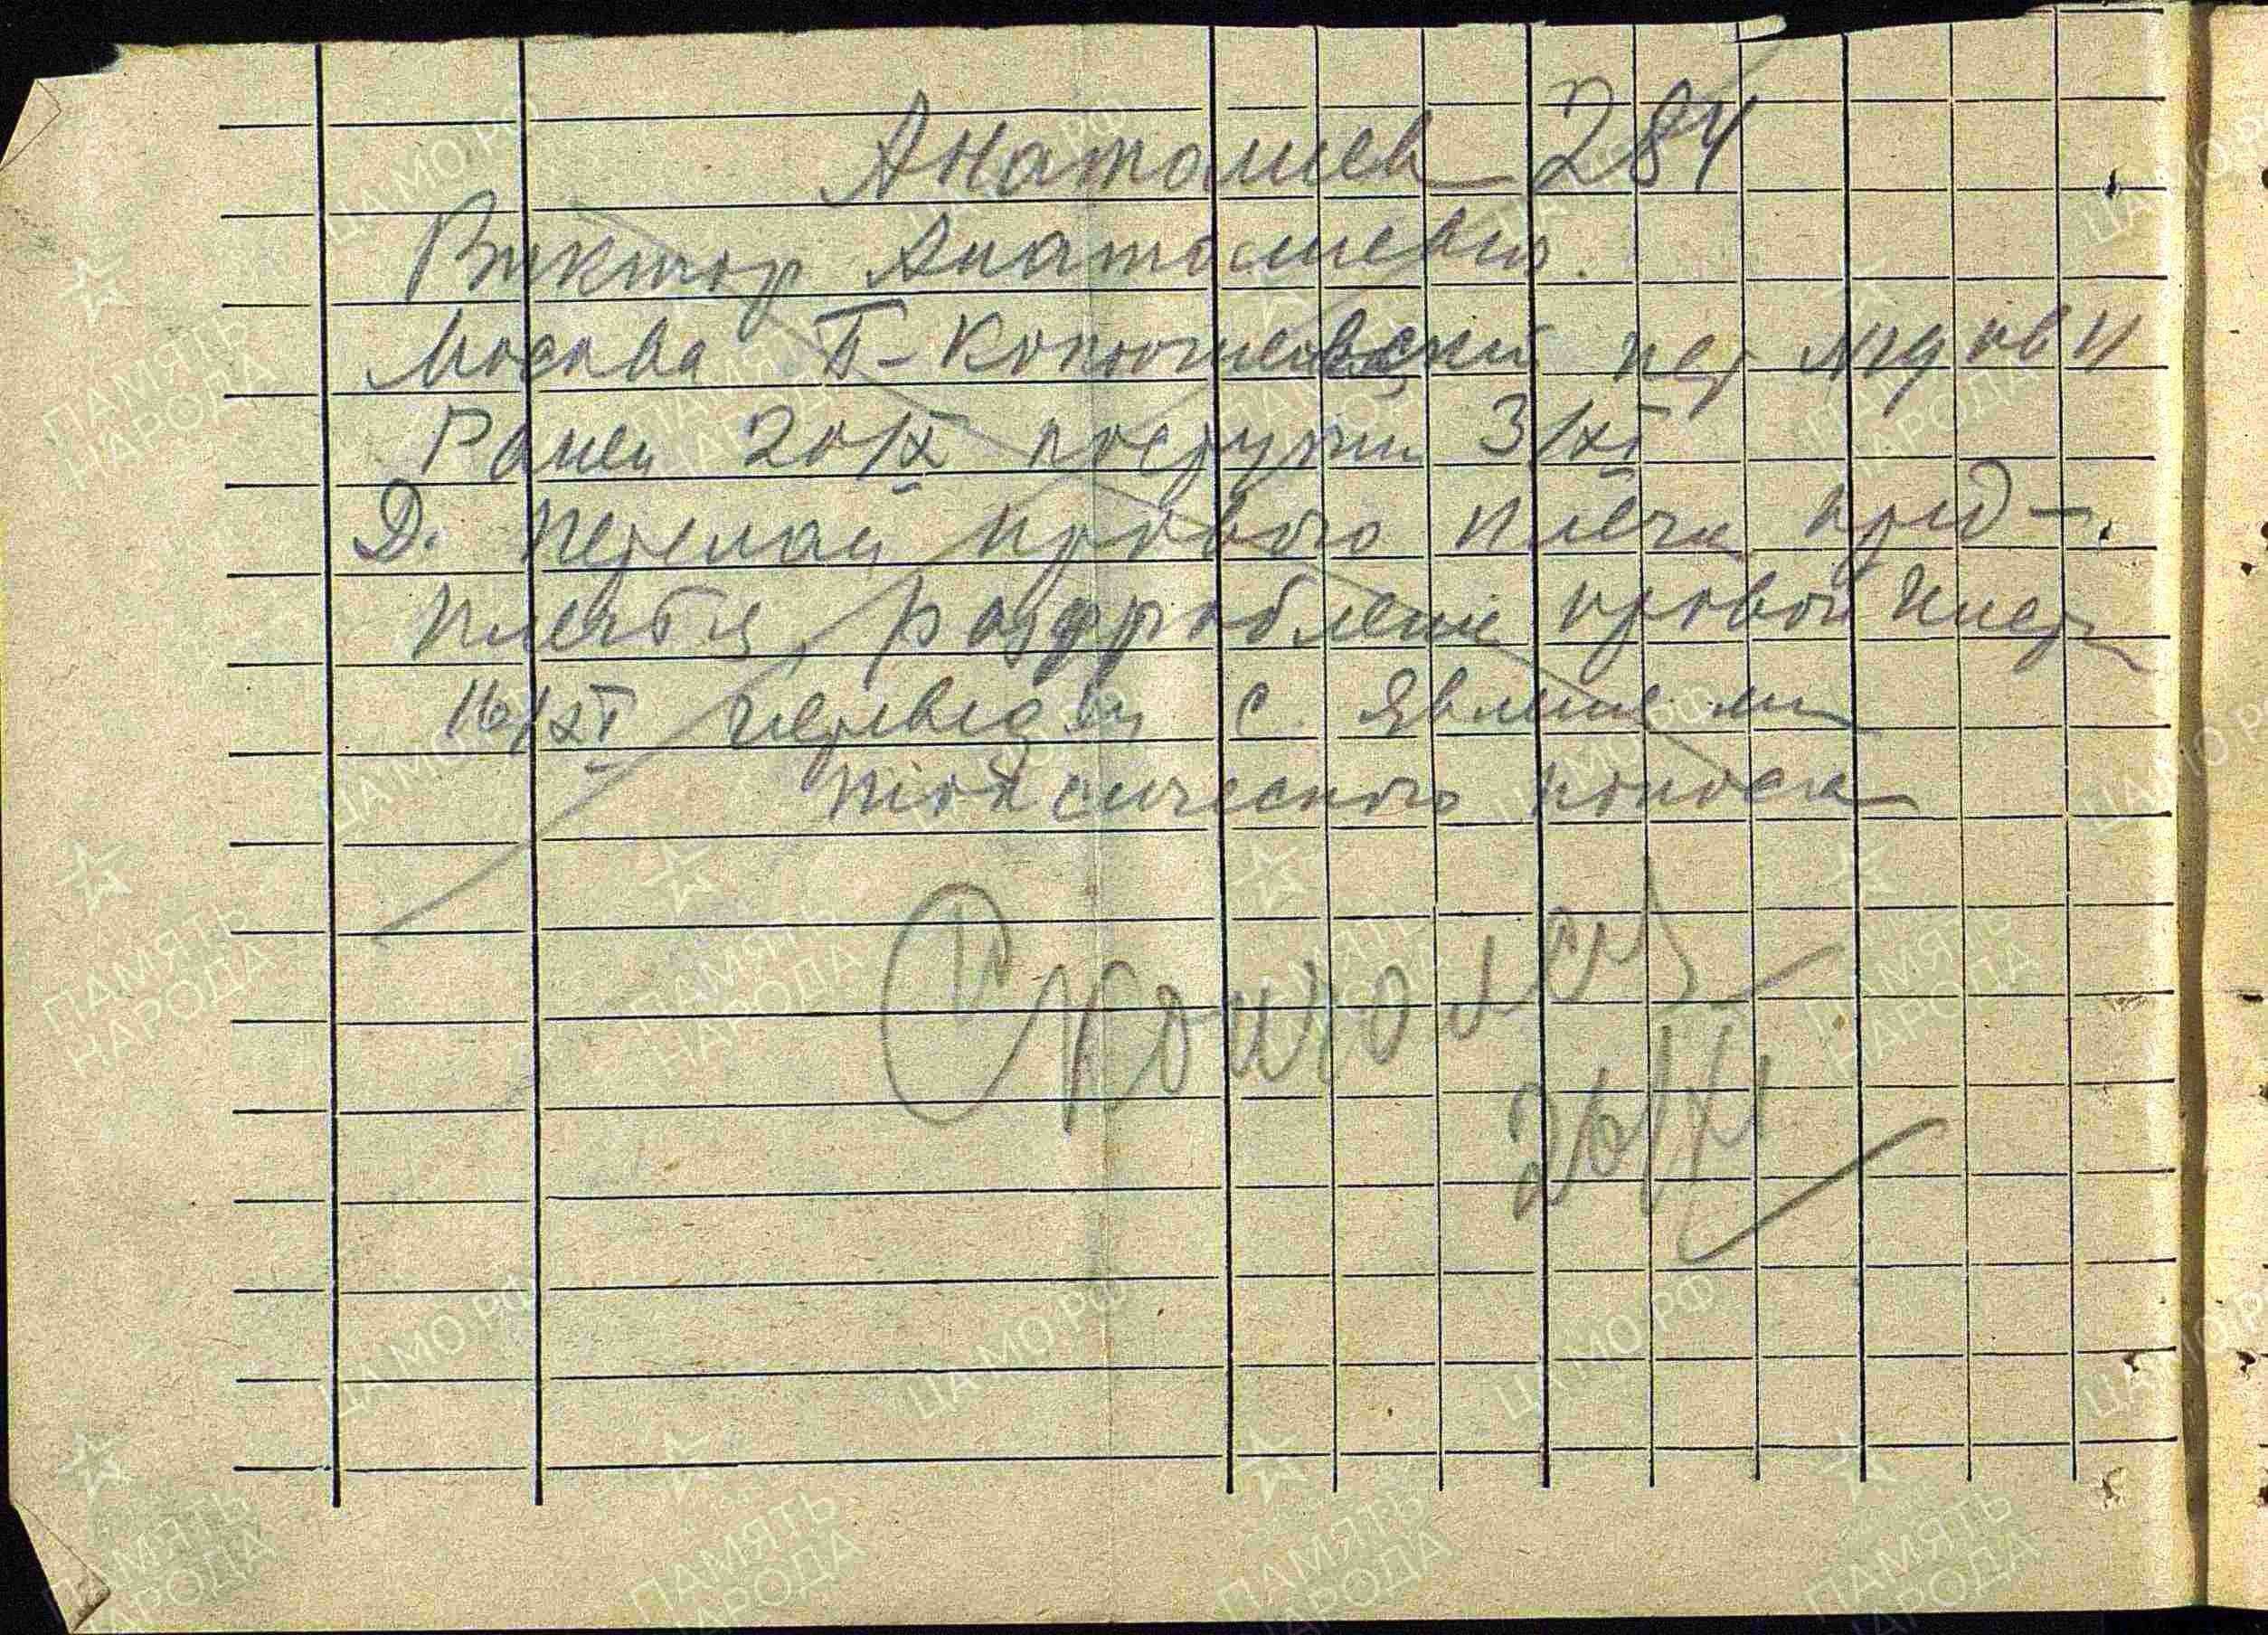 Анатолиев 284
Виктор Анатолиевич.
Москва Б-Конюшковский пер №19 кв 11
Ранен 20/IX поступил 3/XI
D. Перелом правого плеча, пред-
плечья, раздробление правой кисти
16/XI переведен с явлениями
токсического поноса
26/XI
ПАМЯТЬ НАРОДА
ЦАМО.РФ